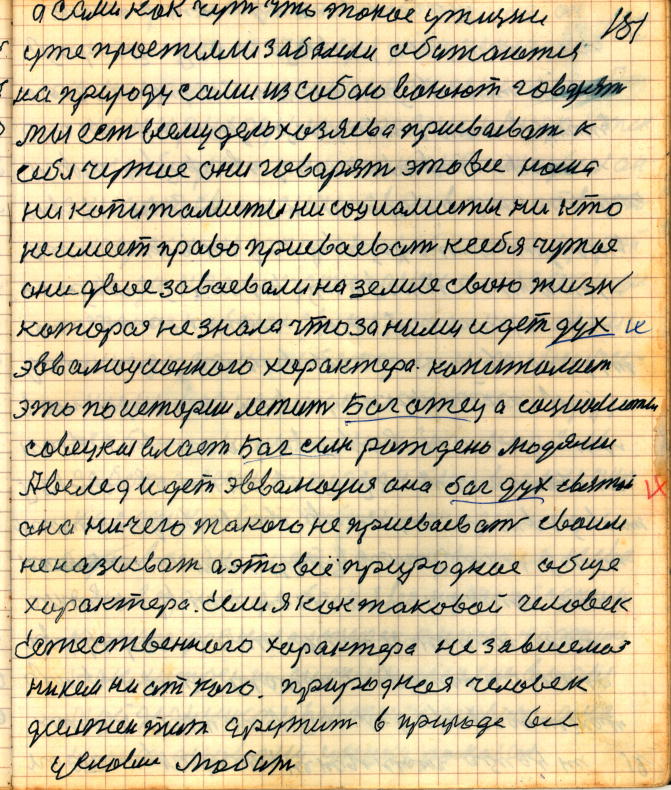 а сами как чут что такое у жизни
181
уже простилли забыли обижаются
на природу сами из собою воюют говорят
мы ест всему делу хозяева присваеват к
себя чужое они говарят это все наша
ни копиталисты ни социалисты ни кто
не имеет право присваеват к себя чужое
они двое заваевали на земле свою жизн
которая не знала что за ними идет дух
эввалюционного характера. капиталист
это по истории летит Бог отец а социолисты
совецкая власт Бог сын рождень людями
А вслед идет эввалюция она бог дух святы
IX
она ничего такого не присваеват своим
не называт а это всё природнае обще
характера. Если я как таковой человек
Естественного характера не зависемо
ни кем ни от кого. природная человек
должен жит дружит в природе все
условии любит